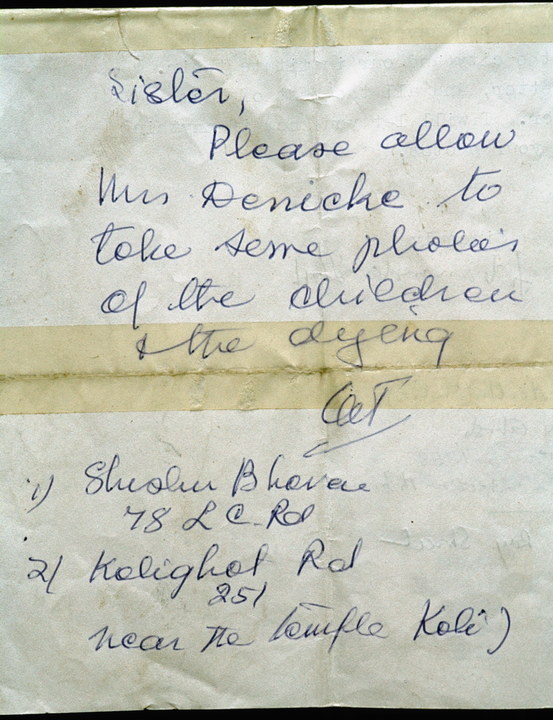 Sister,
Please allow
Mrs Denicke to
take some photos
of the children
& the dying
1) Shishu Bhavan
78 L C. Rd
2) Kalighat Rd
251
near the temple Kali)